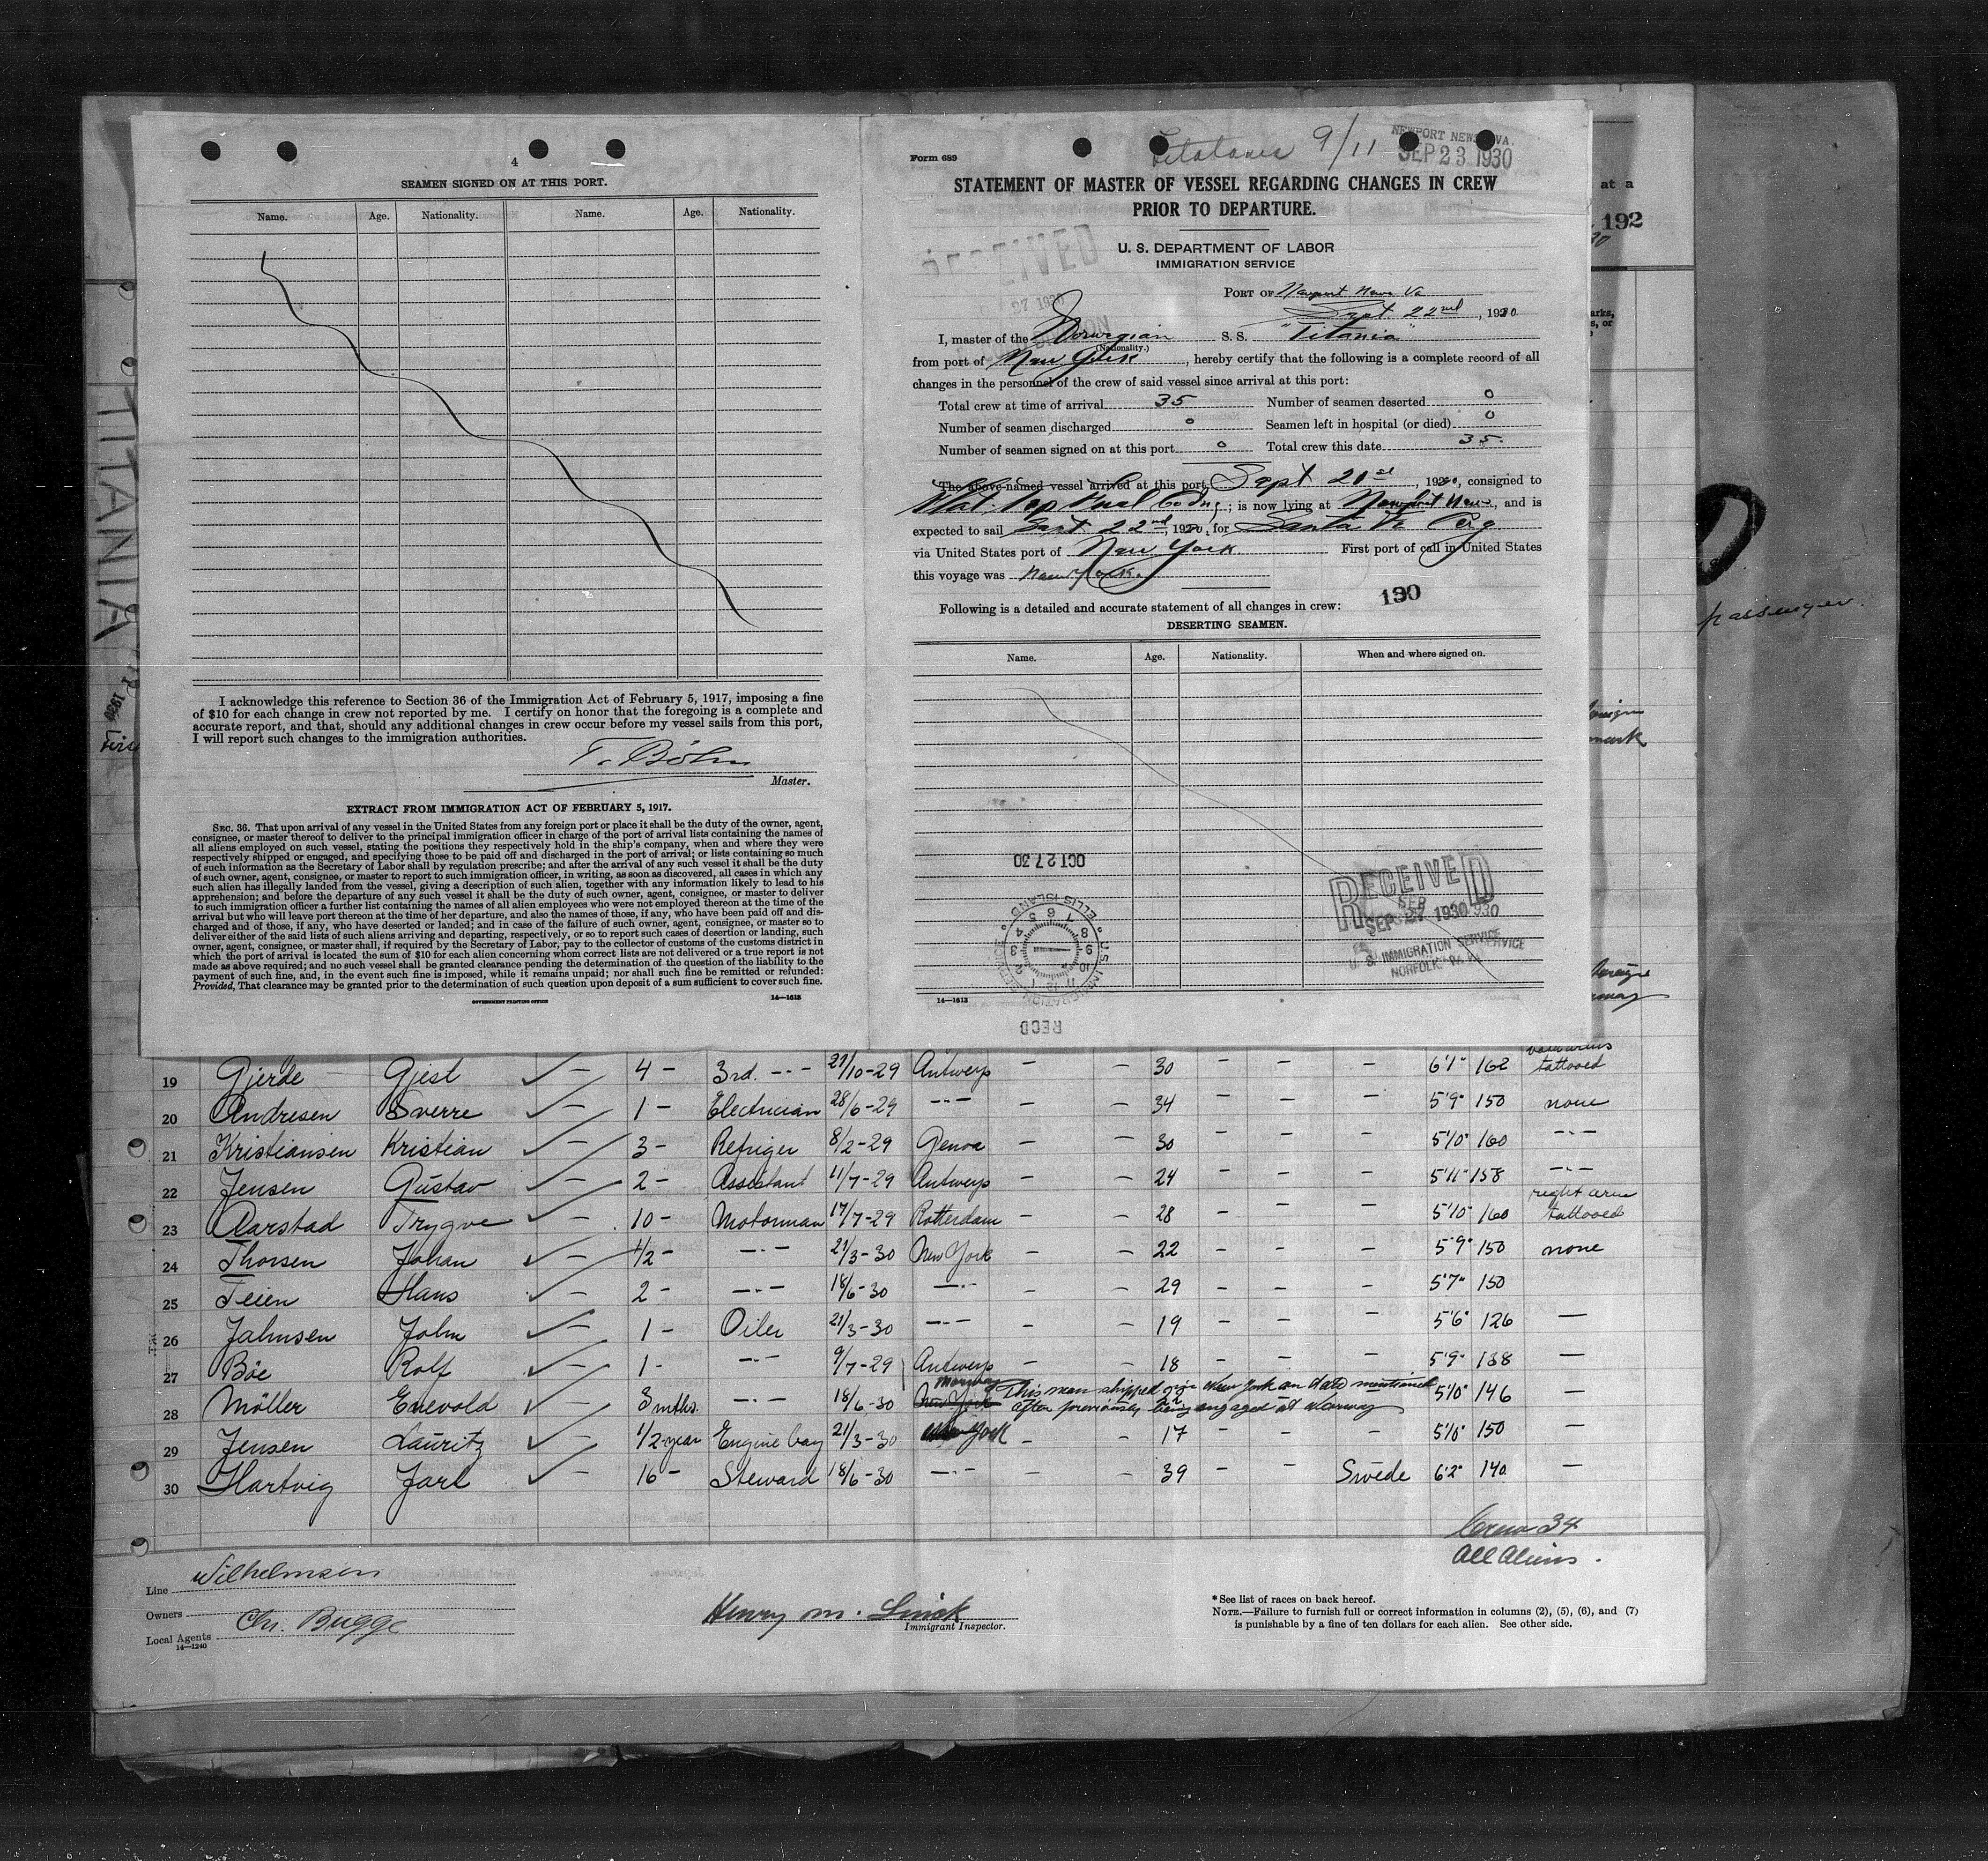 4
SEAMEN SIGNED ON AT THIS PORT.
Name. Age. Nationality. Name. Age. Nationality.
I acknowledge this reference to Section 36 of the Immigration Act of February 5, 1917, imposing a fine
of $10 for each change in crew not reported by me. I certify on honor that the foregoing is a complete and
accurate report, and that, should any additional changes in crew occur before my vessel sails from this port,
I will report such changes to the immigration authorities.
T. Böhn
Master.
EXTRACT FROM IMMIGRATION ACT OF FEBRUARY 5, 1917.
SEC. 36. That upon arrival of any vessel in the United States from any foreign port or place it shall be the duty of the owner, agent,
consignee, or master thereof to deliver to the principal immigration officer in charge of the port of arrival lists containing the names of
all aliens employed on such vessel, stating the positions they respectively hold in the ship's company, when and where they were
respectively shipped or engaged, and specifying those to be paid off and discharged in the port of arrival; or lists containing so much
of such information as the Secretary of Labor shall by regulation prescribe; and after the arrival of any such vessel it shall be the duty
of such owner, agent, consignee, or master to report to such immigration officer, in writing, as soon as discovered, all cases in which any
such alien has illegally landed from the vessel, giving a description of such alien, together with any information likely to lead to his
apprehension; and before the departure of any such vessel it shall be the duty of such owner, agent, consignee, or master to deliver
to such immigration officer a further list containing the names of all alien employees who were not employed thereon at the time of the
arrival but who will leave port thereon at the time of her departure, and also the names of those, if any, who have been paid off and dis-
charged and of those, if any, who have deserted or landed; and in case of the failure of such owner, agent, consignee, or master so to
deliver either of the said lists of such aliens arriving and departing, respectively, or so to report such cases of desertion or landing, such
owner, agent, consignee, or master shall, if required by the Secretary of Labor, pay to the collector of customs of the customs district in
which the port of arrival is located the sum of $10 for each alien concerning whom correct lists are not delivered or a true report is not
made as above required; and no such vessel shall be granted clearance pending the determination of the question of the liability to the
payment of such fine, and, in the event such fine is imposed, while it remains unpaid; nor shall such fine be remitted or refunded:
Provided, That clearance may be granted prior to the determination of such question upon deposit of a sum sufficient to cover such fine.
GOVERNMENT PRINTING OFFICE 14—1613
Form 689
9/11
NEWPORT NEWS, VA.
SEP 23 1930
STATEMENT OF MASTER OF VESSEL REGARDING CHANGES IN CREW
PRIOR TO DEPARTURE.
RECEIVED
27 1930
U. S. DEPARTMENT OF LABOR
IMMIGRATION SERVICE
PORT OF Newport News Va
Sept. 22nd, 1930
I, master of the Norwegian S. S. "Titania"
(Nationality.)
from port of New York, hereby certify that the following is a complete record of all
changes in the personnel of the crew of said vessel since arrival at this port:
Total crew at time of arrival 35 Number of seamen deserted 0
Number of seamen discharged 0 Seamen left in hospital (or died) 0
Number of seamen signed on at this port 0 Total crew this date 35
The above-named vessel arrived at this port Sept 21st, 1930, consigned to
; is now lying at Newport News, and is
expected to sail Sept 22nd, 1930, for Santa Fe Arg
via United States port of New York First port of call in United States
this voyage was New York.
130
Following is a detailed and accurate statement of all changes in crew:
DESERTING SEAMEN.
Name. Age. Nationality. When and where signed on.
OCT 27 30
ELLIS ISLAND
U.S. IMMIGRATION
RECEIVED
SEP 27 1930
U. S. IMMIGRATION SERVICE
NORFOLK VA.
14—1613
RECD
at a
192
TITANIA
1930
passenger.
19 Gjerde Gjest 4 - 3rd. -"- 27/10-29 Antwerp - - 30 - - - 6'1" 162 tattooed
20 Andresen Sverre 1 - Electrician 28/6-29 -"- - - 34 - - - 5'9" 150 none
21 Kristiansen Kristian 3 - Refriger 8/2-29 Genoa - 30 - - - 5'10" 160 -"-
22 Jensen Gustav 2 - Assistant 11/7-29 Antwerp - - 24 - - - 5'11" 158 -"-
23 Aarstad Trygve 10 - Motorman 17/7-29 Rotterdam - - 28 - - - 5'10" 160 right arm tattooed
24 Thorsen Johan 1/2 - -"- 21/3-30 New York - - 22 - - - 5'9" 150 none
25 Teien Hans 2 - -"- 18/6-30 -"- - - 29 - - - 5'7" 150
26 Jahnsen John 1 - Oiler 21/3-30 -"- - - 19 - - - 5'6" 126 —
27 Böe Rolf 1 - -"- 9/7-29 Antwerp - - 18 - - - 5'9" 138 —
28 Möller Enevold 3 mths. -"- 18/6-30 New York Norway This man shipped in New York on date mentioned after previously being engaged at Norway 5'10" 146 —
29 Jensen Lauritz 1/2 year Engine boy 21/3-30 New York - - 17 - - - 5'10" 150
30 Hartvig Jarl 16 - Steward 18/6-30 -"- - - 39 - - Swede 6'2" 140 —
Crew 34
All Aliens.
Line Wilhelmsen
Owners
Local Agents Chr. Bugge
14—1240
Henry M.
Immigrant Inspector.
* See list of races on back hereof.
NOTE.—Failure to furnish full or correct information in columns (2), (5), (6), and (7)
is punishable by a fine of ten dollars for each alien. See other side.